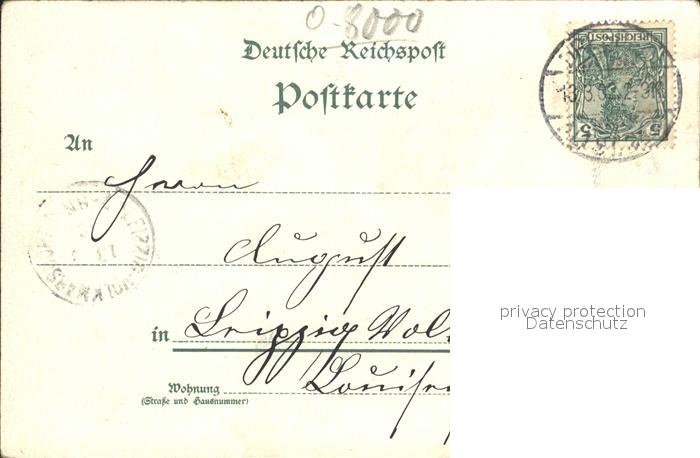 0-8000
Deutsche Reichspost
Postkarte
REICHSPOST
5 5
An
Herrn
August
in Leipzig Vol
Wohnung
(Straße und Hausnummer)
Louisen
LEIPZIG-VOLKMARSDORF
privacy protection
Datenschutz